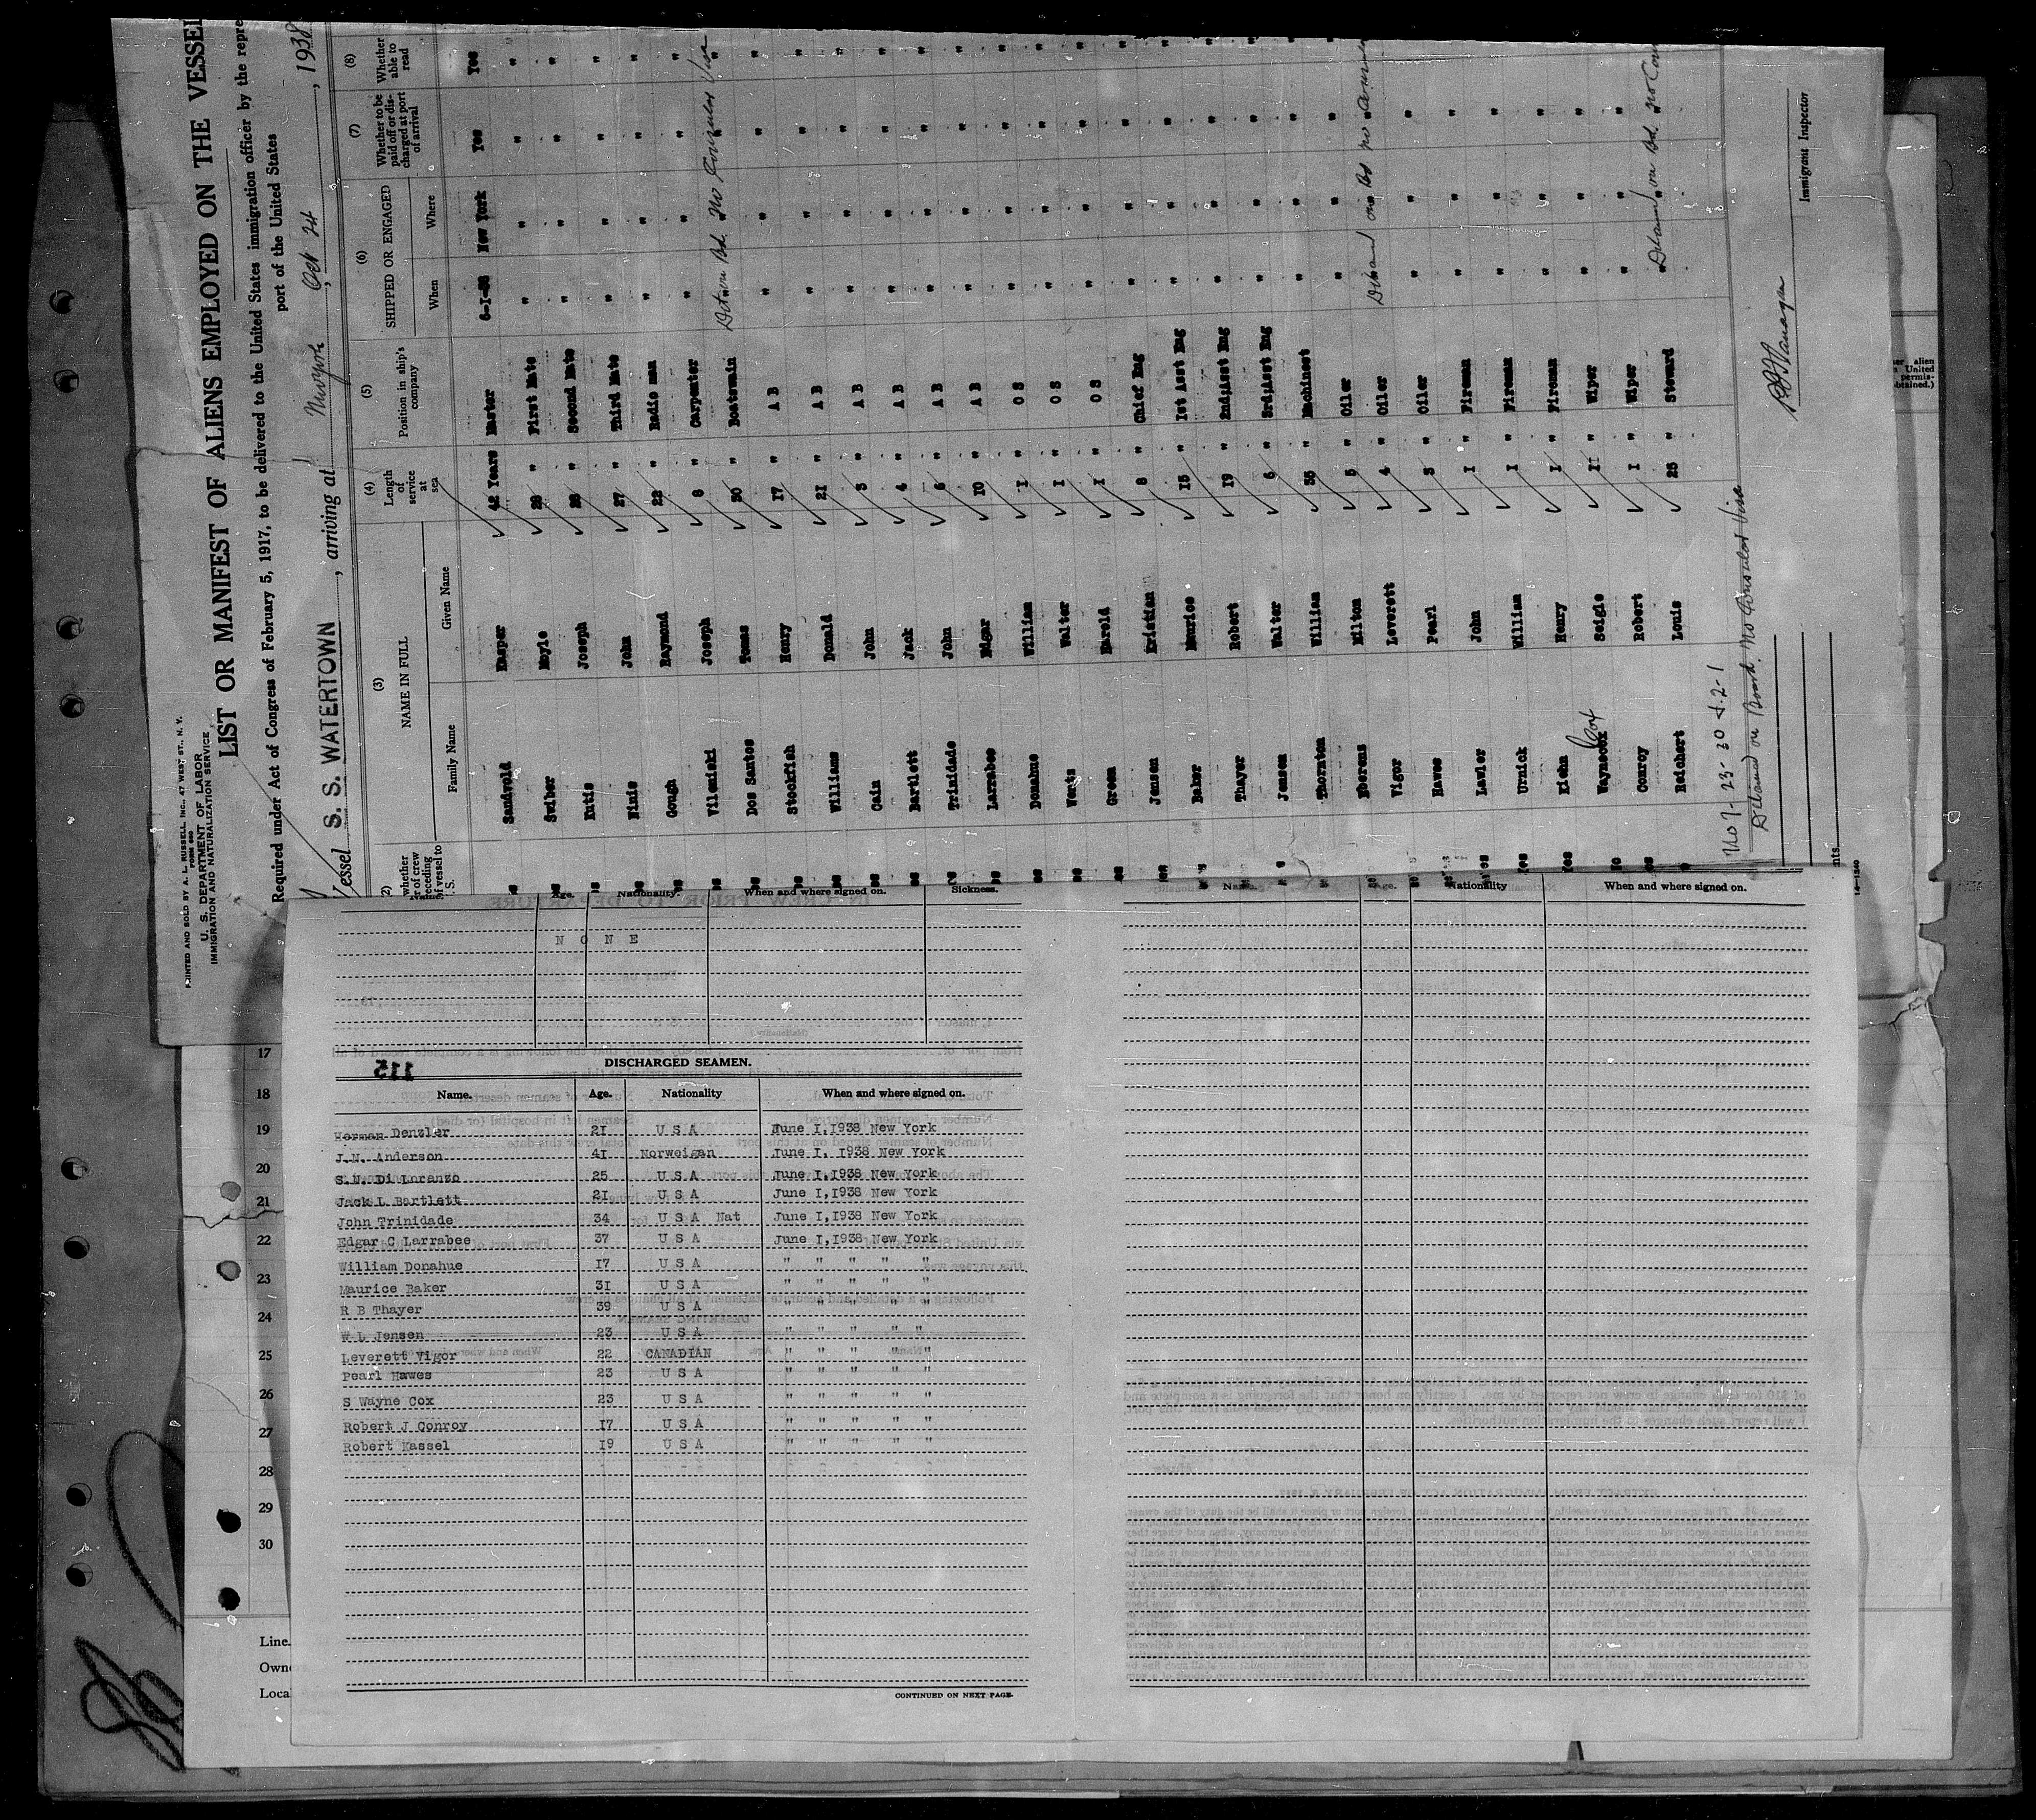 PRINTED AND SOLD BY A. L. RUSSELL, INC., 47 WEST ST., N. Y.
FORM 680
U. S. DEPARTMENT OF LABOR
IMMIGRATION AND NATURALIZATION SERVICE
LIST OR MANIFEST OF ALIENS EMPLOYED ON THE VESSEL
Required under Act of Congress of February 5, 1917, to be delivered to the United States immigration officer by the repre
port of the United States
Vessel S. S. WATERTOWN, arriving at Newyork, Oct 24, 1938
(2) (3) (4) (5) (6) (7) (8)
NAME IN FULL
Family Name Given Name
Length of service at sea
Position in ship's company
SHIPPED OR ENGAGED
When Where
Whether to be paid off or discharged at port of arrival
Whether able to read
Sandvold Kasper 42 Years Master 6-I-38 New York Yes Yes
Swiber Moyle 28 " First Mate " " " "
Kutis Joseph 26 " Second Mate " " " "
Hinis John 27 " Third Mate " " " "
Gough Raymond 22 " Radio man " " " "
Vilemiski Joseph 8 " Carpenter " " " "
Dos Santos Tomas 30 " Boatswain Det on Bd. No Consular Visa
Stockfish Henry 17 " A B " " " "
Williams Donald 21 " A B " " " "
Cain John 3 " A B " " " "
Bartlett Jack 4 " A B " " " "
Trinidade John 6 " A B " " " "
Larrabee Edgar 10 " A B " " " "
Donahue William I " O S " " " "
Wertz Walter I " O S " " " "
Green Harold I " O S " " " "
Jensen Kristian 8 " Chief Eng " " " "
Baker Maurice 15 " Ist Asst Eng " " " "
Thayer Robert 19 " 2nd,Asst Eng " " " "
Jensen Walter 6 " 3rd,Asst Eng " " " "
Thornton William 35 " Machinest " " " "
Eberens Milton 5 " Oiler " " " "
Vigor Leverett 4 " Oiler Detained on Bd no
Hawes Pearl 3 " Oiler " " "
Lawler John I " Fireman " " "
Urnick William I " Fireman " " "
Kiehn Henry I " Fireman " " "
Waynecox Cox Seigle II " Wiper " " "
Conroy Robert I " Wiper " " "
Reichert Louis 25 " Steward Detained on Bd. No Con
No 7-23-30 & 2-1
Detained on Board. No Consular Visa
Immigrant Inspector
Age. Nationality. When and where signed on. Sickness.
N O N E
DISCHARGED SEAMEN.
115
Name. Age. Nationality When and where signed on.
Herman Denzler 21 U S A June I,1938 New York
J.N. Anderson 41 Norweigan June I, 1938 New York
S.N. Di Loranzo 25 U S A June I,1938 New York
Jack L Bartlett 21 U S A June I,1938 New York
John Trinidade 34 U S A Nat June I,1938 New York
Edgar C Larrabee 37 U S A June I,1938 New York
William Donahue I7 U S A " " " " "
Maurice Baker 31 U S A " " " " "
R B Thayer 39 U S A " " " " "
W L Jensen 23 U S A " " " " "
Leverett Vigor 22 CANADIAN " " " " "
Pearl Hawes 23 U S A " " " " "
S Wayne Cox 23 U S A " " " " "
Robert J Conroy I7 U S A " " " " "
Robert Kassel I9 U S A " " " " "
CONTINUED ON NEXT PAGE.
Name. Age. Nationality When and where signed on.
17
18
19
20
21
22
23
24
25
26
27
28
29
30
Line
Owne
Loca